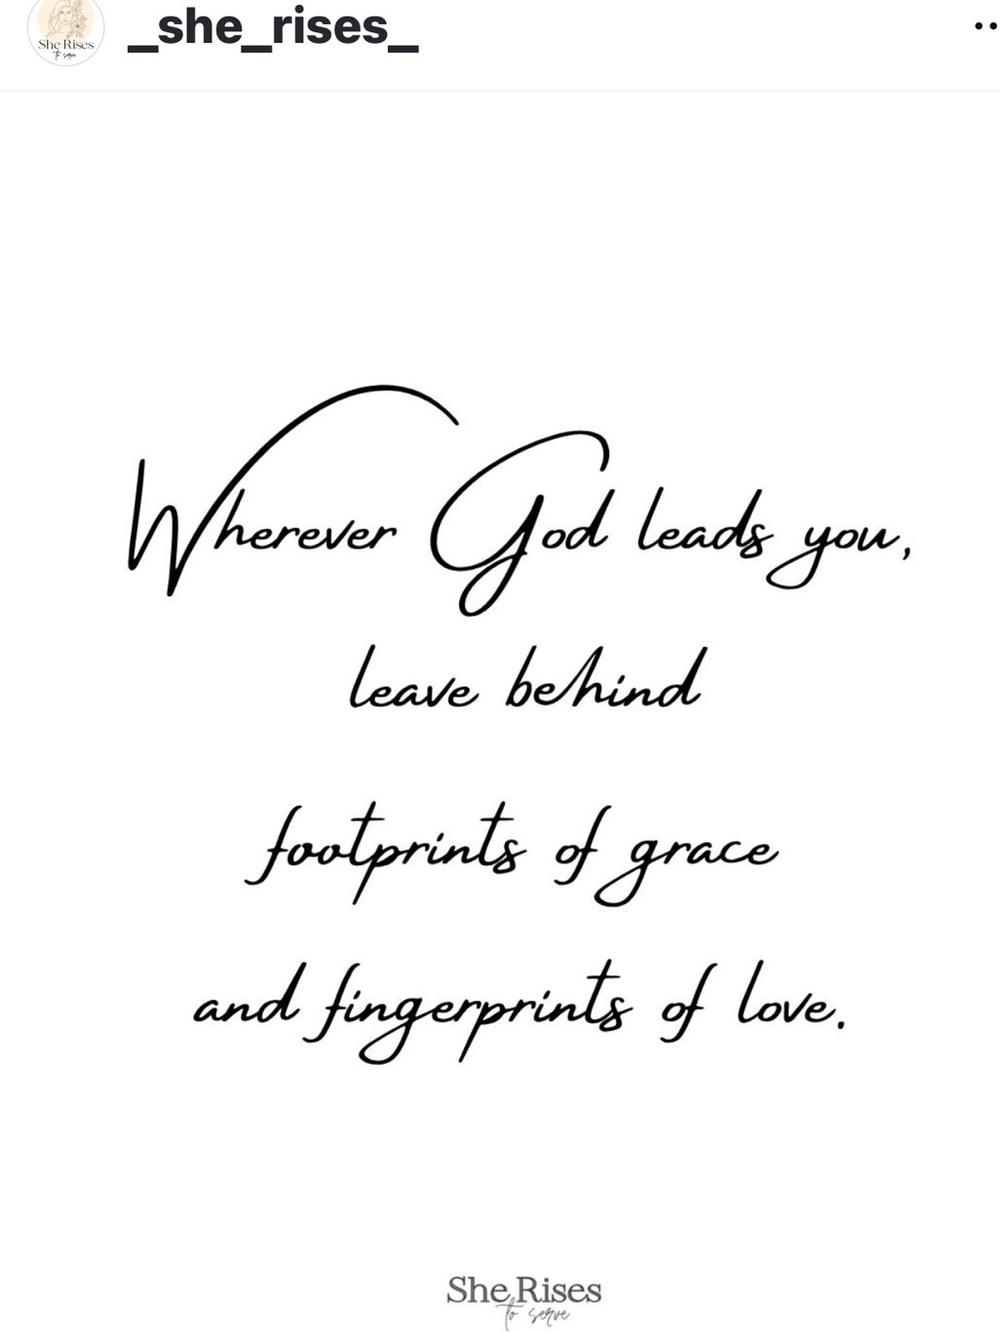 She Rises
to serve
_she_rises_
Wherever God leads you,
leave behind
footprints of grace
and fingerprints of love.
She Rises
to serve